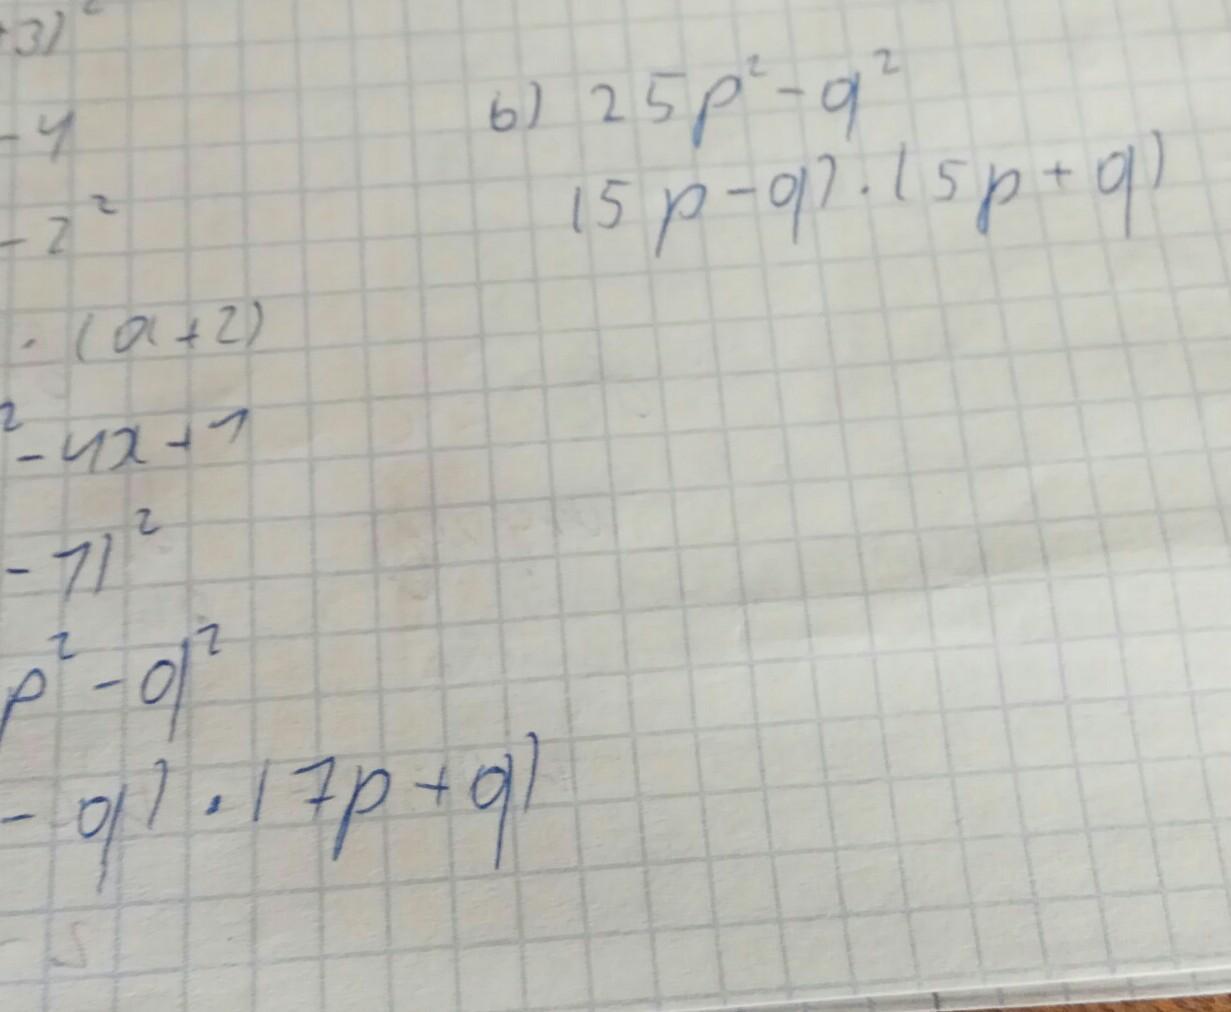 +3)²
- 4
- 2²
· (a+2)
² - 4x + 1
- 1)²
p² - q²
- q) · (7p + q)
- 5
b) 25p² - q²
(5p - q) · (5p + q)